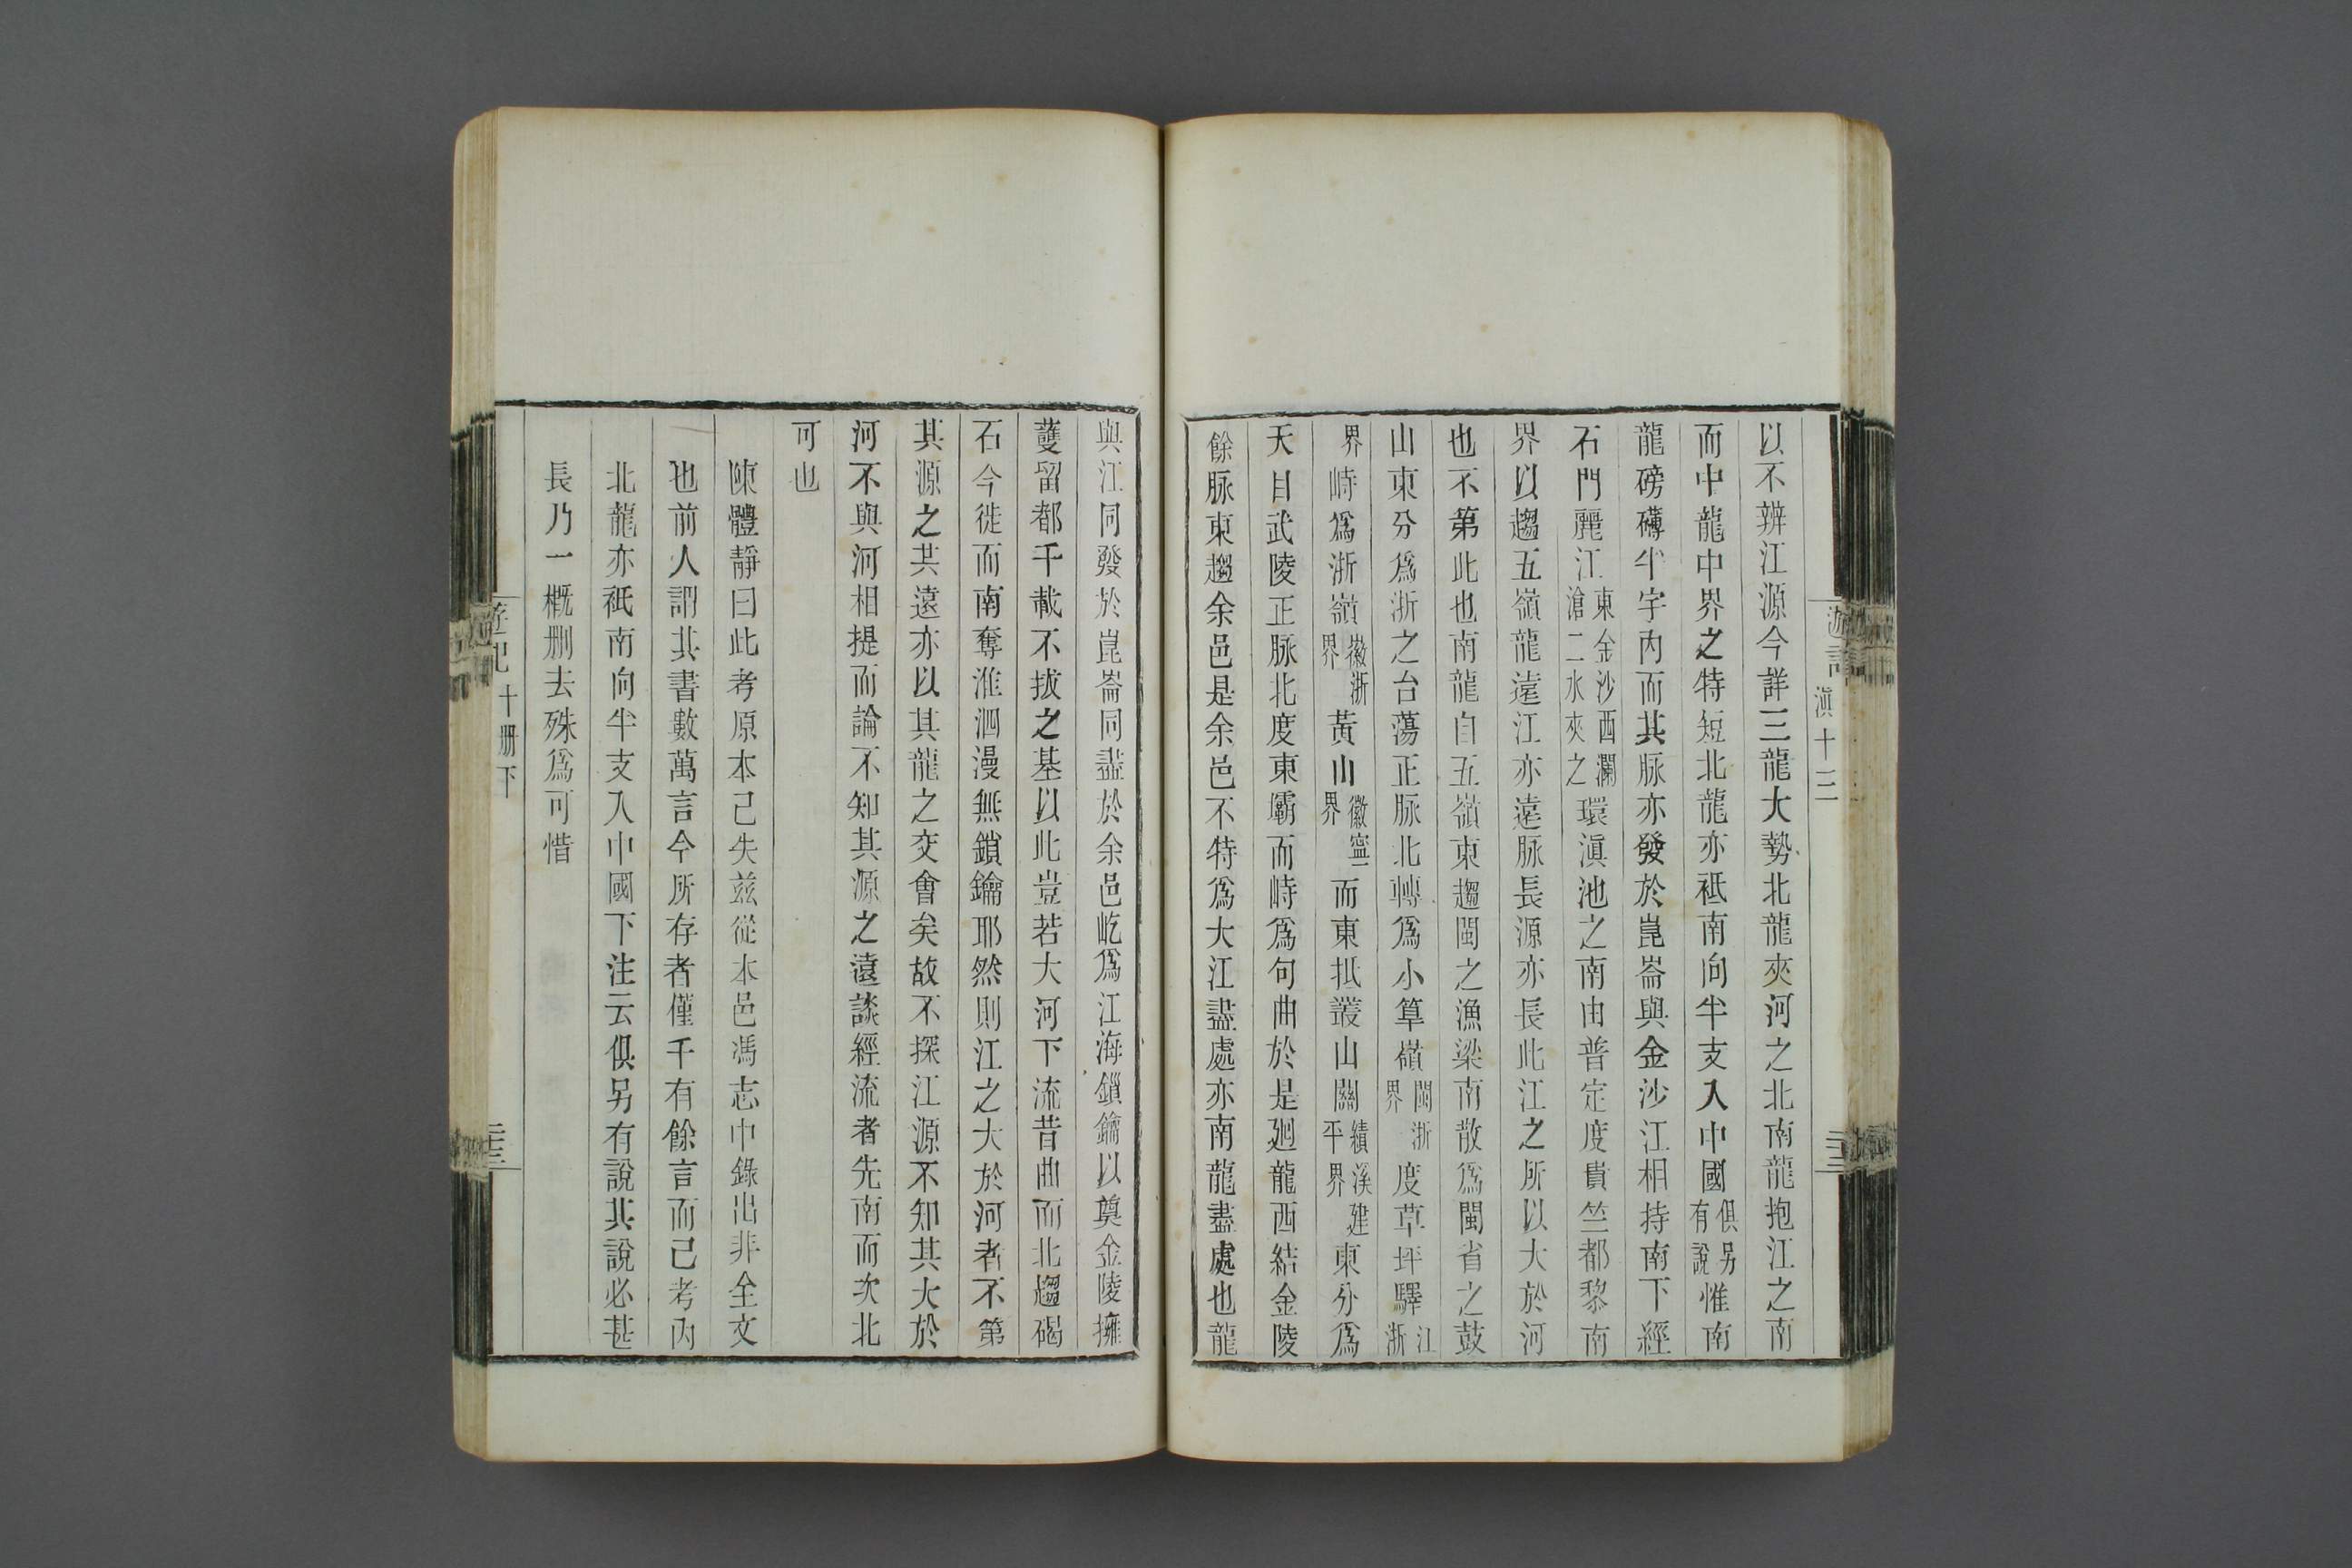 以不辨江源今詳三龍大勢北龍夾河之北南龍抱江之南
而中龍中界之特短北龍亦祗南向半支入中國俱另有說惟南
龍磅礴半宇內而其脉亦發於崑崙與金沙江相持南下經
石門麗江東金沙西瀾滄二水夾之環滇池之南由普定度貴竺都黎南
界以趨五嶺龍遠江亦遠脉長源亦長此江之所以大於河
也不第此也南龍自五嶺東趨閩之漁梁南散爲閩省之鼓
山東分爲浙之台蕩正脉北轉爲小箄嶺閩浙界度草坪驛江浙
界峙爲浙嶺徽浙界黃山徽寧界而東抵叢山關績溪建平界東分爲
天目武陵正脉北度東壩而峙爲句曲於是廻龍西結金陵
餘脉東趨余邑是余邑不特爲大江盡處亦南龍盡處也龍
與江同發於崑崙同盡於余邑屹爲江海鎖鑰以奠金陵擁
護留都千載不拔之基以此豈若大河下流昔曲而北趨碣
石今徙而南奪淮泗漫無鎖鑰耶然則江之大於河者不第
其源之共遠亦以其龍之交會矣故不探江源不知其大於
河不與河相提而論不知其源之遠談經流者先南而次北
可也
陳體靜曰此考原本己失茲從本邑馮志中錄出非全文
也前人謂其書數萬言今所存者僅千有餘言而己考內
北龍亦祗南向半支入中國下注云俱另有說其說必甚
長乃一概刪去殊爲可惜
遊記
滇十三
遊記
十册下